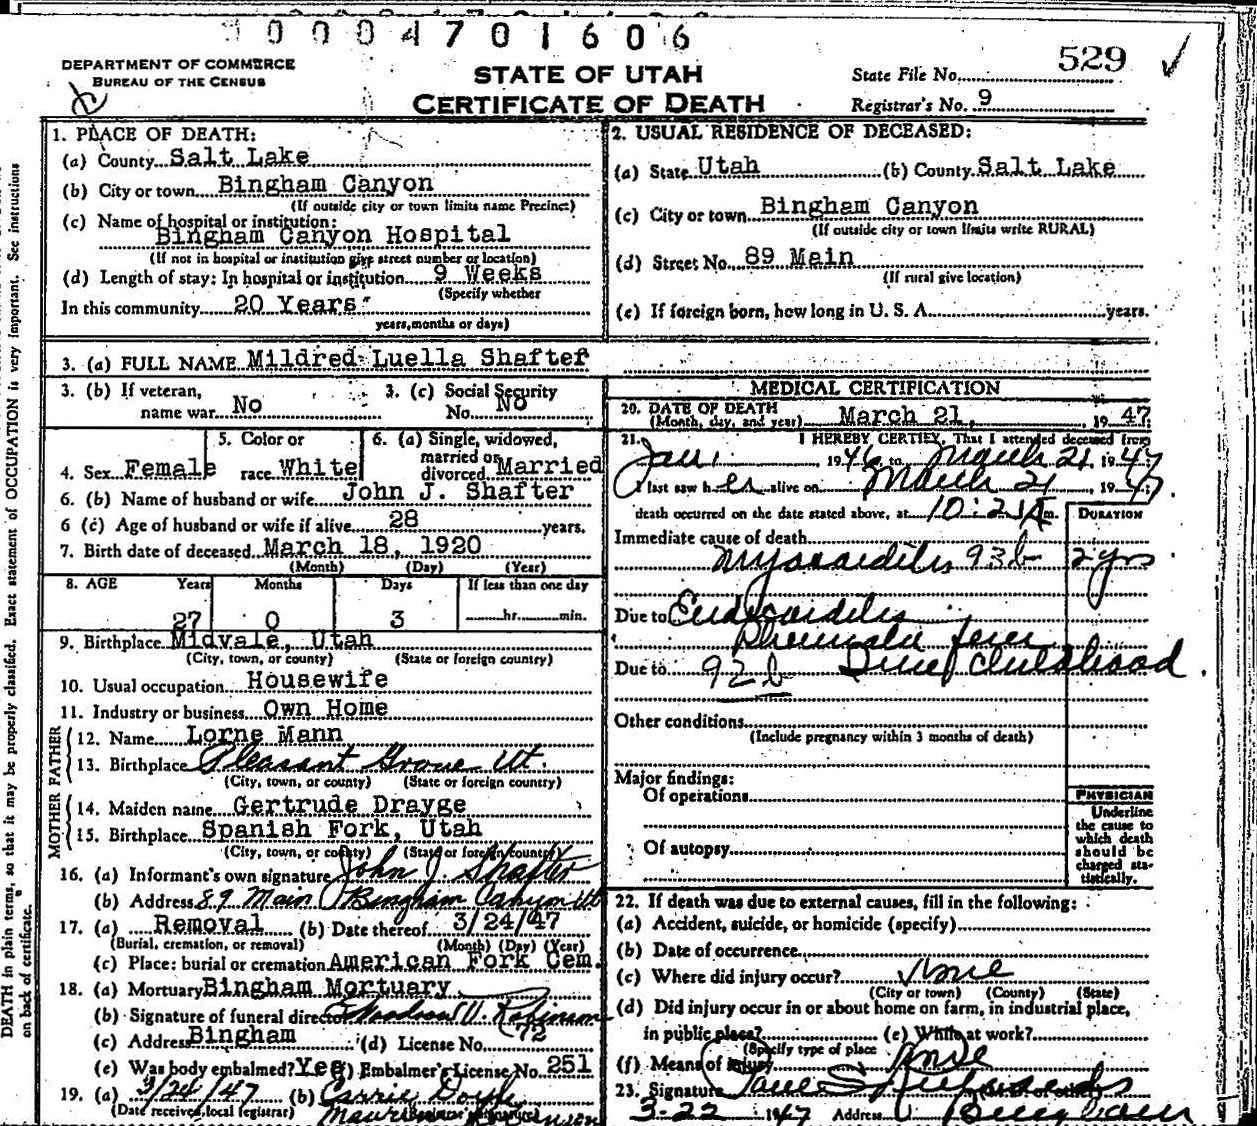 0004701606
DEPARTMENT OF COMMERCE
BUREAU OF THE CENSUS
STATE OF UTAH
CERTIFICATE OF DEATH
State File No. 529
Registrar's No. 9
1. PLACE OF DEATH:
(a) County Salt Lake
(b) City or town Bingham Canyon
(If outside city or town limits name Precinct)
(c) Name of hospital or institution:
Bingham Canyon Hospital
(If not in hospital or institution give street number or location)
(d) Length of stay: In hospital or institution 9 Weeks
(Specify whether
In this community 20 Years
years, months or days)
2. USUAL RESIDENCE OF DECEASED:
(a) State Utah (b) County Salt Lake
(c) City or town Bingham Canyon
(If outside city or town limits write RURAL)
(d) Street No. 89 Main
(If rural give location)
(e) If foreign born, how long in U. S. A. years.
3. (a) FULL NAME Mildred Luella Shafter
3. (b) If veteran, name war No
3. (c) Social Security No. No
4. Sex Female
5. Color or race White
6. (a) Single, widowed, married or divorced Married
6. (b) Name of husband or wife John J. Shafter
6 (c) Age of husband or wife if alive 28 years.
7. Birth date of deceased March 18, 1920
(Month) (Day) (Year)
8. AGE Years Months Days If less than one day
27 0 3 hr. min.
9. Birthplace Midvale, Utah
(City, town, or county) (State or foreign country)
10. Usual occupation Housewife
11. Industry or business Own Home
FATHER
12. Name Lorne Mann
13. Birthplace Pleasant Grove Ut.
(City, town, or county) (State or foreign country)
MOTHER
14. Maiden name Gertrude Drayge
15. Birthplace Spanish Fork, Utah
(City, town, or county) (State or foreign country)
16. (a) Informant's own signature John J. Shafter
(b) Address 89 Main Bingham Canyon Ut
17. (a) Removal (b) Date thereof 3/24/47
(Burial, cremation, or removal) (Month) (Day) (Year)
(c) Place: burial or cremation American Fork Cem.
18. (a) Mortuary Bingham Mortuary
(b) Signature of funeral director
(c) Address Bingham (d) License No. 72
(e) Was body embalmed? Yes (f) Embalmer's License No. 251
19. (a) 3/24/47 (b) Carrie Doyle
(Date received local registrar)
MEDICAL CERTIFICATION
20. DATE OF DEATH March 21, 1947
(Month, day, and year)
21. I HEREBY CERTIFY, That I attended deceased from
Jan. 1946 to March 21 1947
I last saw her alive on March 21, 1947
death occurred on the date stated above, at m.
DURATION
Immediate cause of death
Myocarditis 93b 2 yrs
Due to Endocarditis
Rheumatic fever
Due to 92b Since childhood.
Other conditions
(Include pregnancy within 3 months of death)
Major findings:
Of operations
Of autopsy
PHYSICIAN
Underline
the cause to
which death
should be
charged sta-
tistically.
22. If death was due to external causes, fill in the following:
(a) Accident, suicide, or homicide (specify)
(b) Date of occurrence
(c) Where did injury occur?
(City or town) (County) (State)
(d) Did injury occur in or about home on farm, in industrial place,
in public place? (e) While at work?
(Specify type of place
(f) Means of injury
23. Signature Paul S. Richards
3-22 1947 Address Bingham
DEATH in plain terms, so that it may be properly classified. Exact statement of OCCUPATION is very important. See instructions
on back of certificate.